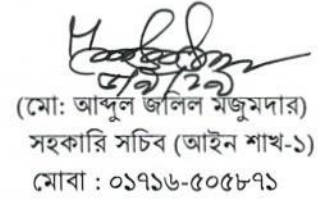 (মো: আব্দুল জলিল মজুমদার)
সহকারি সচিব (আইন শাখ-১)
মোবা : ০১৭১৬-৫০৫৮৭১